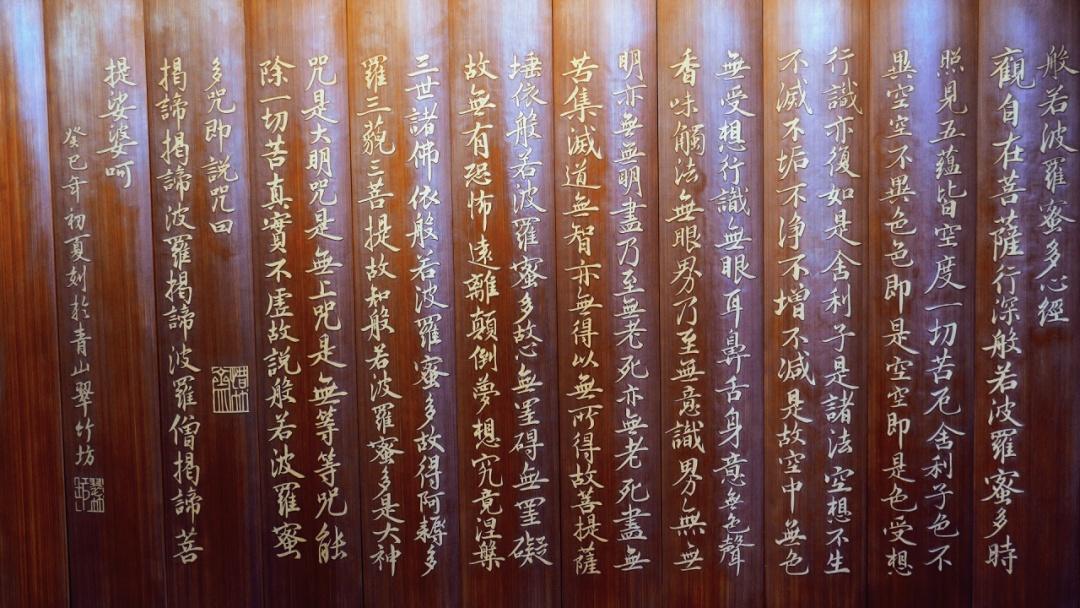 般若波羅蜜多心經
觀自在菩薩行深般若波羅蜜多時
照見五蘊皆空度一切苦厄舍利子色不
異空空不異色色即是空空即是色受想
行識亦復如是舍利子是諸法空想不生
不滅不垢不淨不增不減是故空中無色
無受想行識無眼耳鼻舌身意無色聲
香味觸法無眼界乃至無意識界無無
明亦無無明盡乃至無老死亦無老死盡無
苦集滅道無智亦無得以無所得故菩提薩
埵依般若波羅蜜多故心無罣碍無罣礙
故無有恐怖遠離顛倒夢想究竟涅槃
三世諸佛依般若波羅蜜多故得阿耨多
羅三藐三菩提故知般若波羅蜜多是大神
咒是大明咒是無上咒是無等等咒能
除一切苦真實不虛故說般若波羅蜜
多咒即說咒曰
揭諦揭諦波羅揭諦波羅僧揭諦菩
提娑婆呵
癸巳年初夏刻於青山翠竹坊